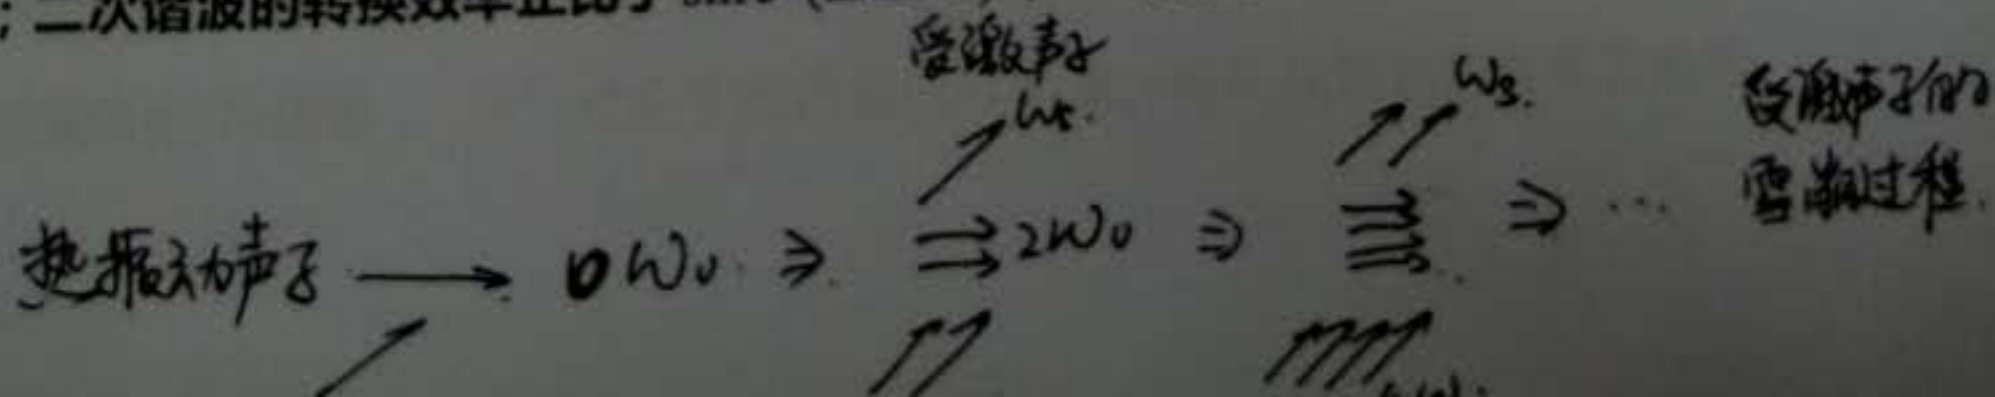 ; 二次谐波的转换效率正比于
受激声子
ωs.
ωs.
受激声子的
雪崩过程.
热振动声子 → ωυ ⇒ 2ωυ ⇒ ⇒ ...